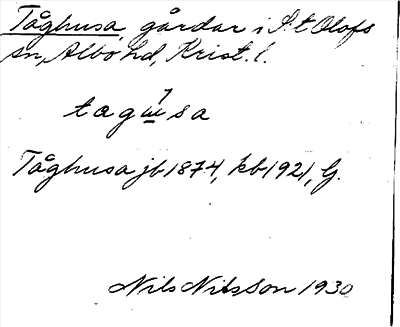 Tåghusa, gårdar i S:t Olofs
sn, Albo hd, Krist. l.
Tåghusa jb 1874, kb 1921, G.
Nils Nilsson 1930